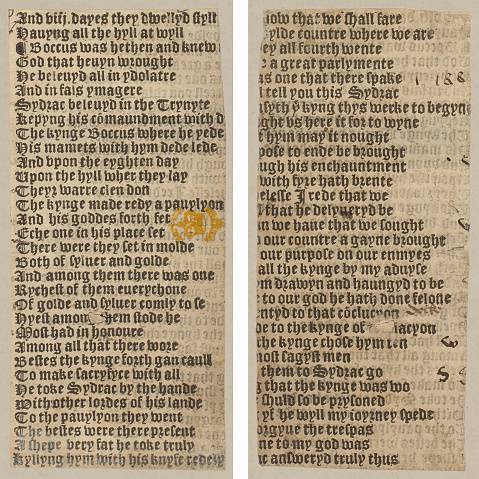 And viij. dayes they dwellyd styll
Hauyng all the hyll at wyll
Boccus was hethen and knew
God that heuyn wrought
He beleuyd all in ydolatre
And in fals ymagere
Sydrac beleuyd in the Trynyte
Kepyng his cõmaundment with d
The kynge Boccus where he yede
His mamets with hym dede lede
And vpon the eyghten day
Upon the hyll wher they lay
Theyr warre clen don
The kynge made redy a pauylyon
And his goddes forth set
Eche one in his place set
There were they set in molde
Both of syluer and golde
And among them there was one
Rychest of them euerychone
Of golde and syluer comly to se
Hyest amon hem stode he
Most had in honoure
Among all that there wore
Bestes the kynge forth gan caull
To make sacryfyce with all
He toke Sydrac by the hande
With other lordes of his lande
To the pauylyon they went
The bestes were there present
A shepe very fat he toke truly
Kyllyng hym with his knyfe redely
how that we shall fare
ylde countre where we are
ey all fourth wente
r a great parlymente
as one that there spake
l tell you this Sydrac
syth y kyng thys werke to begyn
ght vs here it for to wyne
f hym may it nought
pose to ende be brought
ugh his enchauntment
with fyre hath brente
elesse I rede that we
l that he delyueryd be
n we haue that we sought
o our countre a gayne brought
our purpose on our ennyes
all the kynge by my aduyse
m drawyn and haungyd to be
e to our god he hath done felone
entyd to that cõclucyon
oe to the kynge of lacyon
the kynge chose hym ten
most sagyst men
them to Sydrac go
g that the kynge was wo
shuld so be prysoned
yf he wyll my iorney spede
orgyue the trespas
ne to my god was
c answeryd truly thus